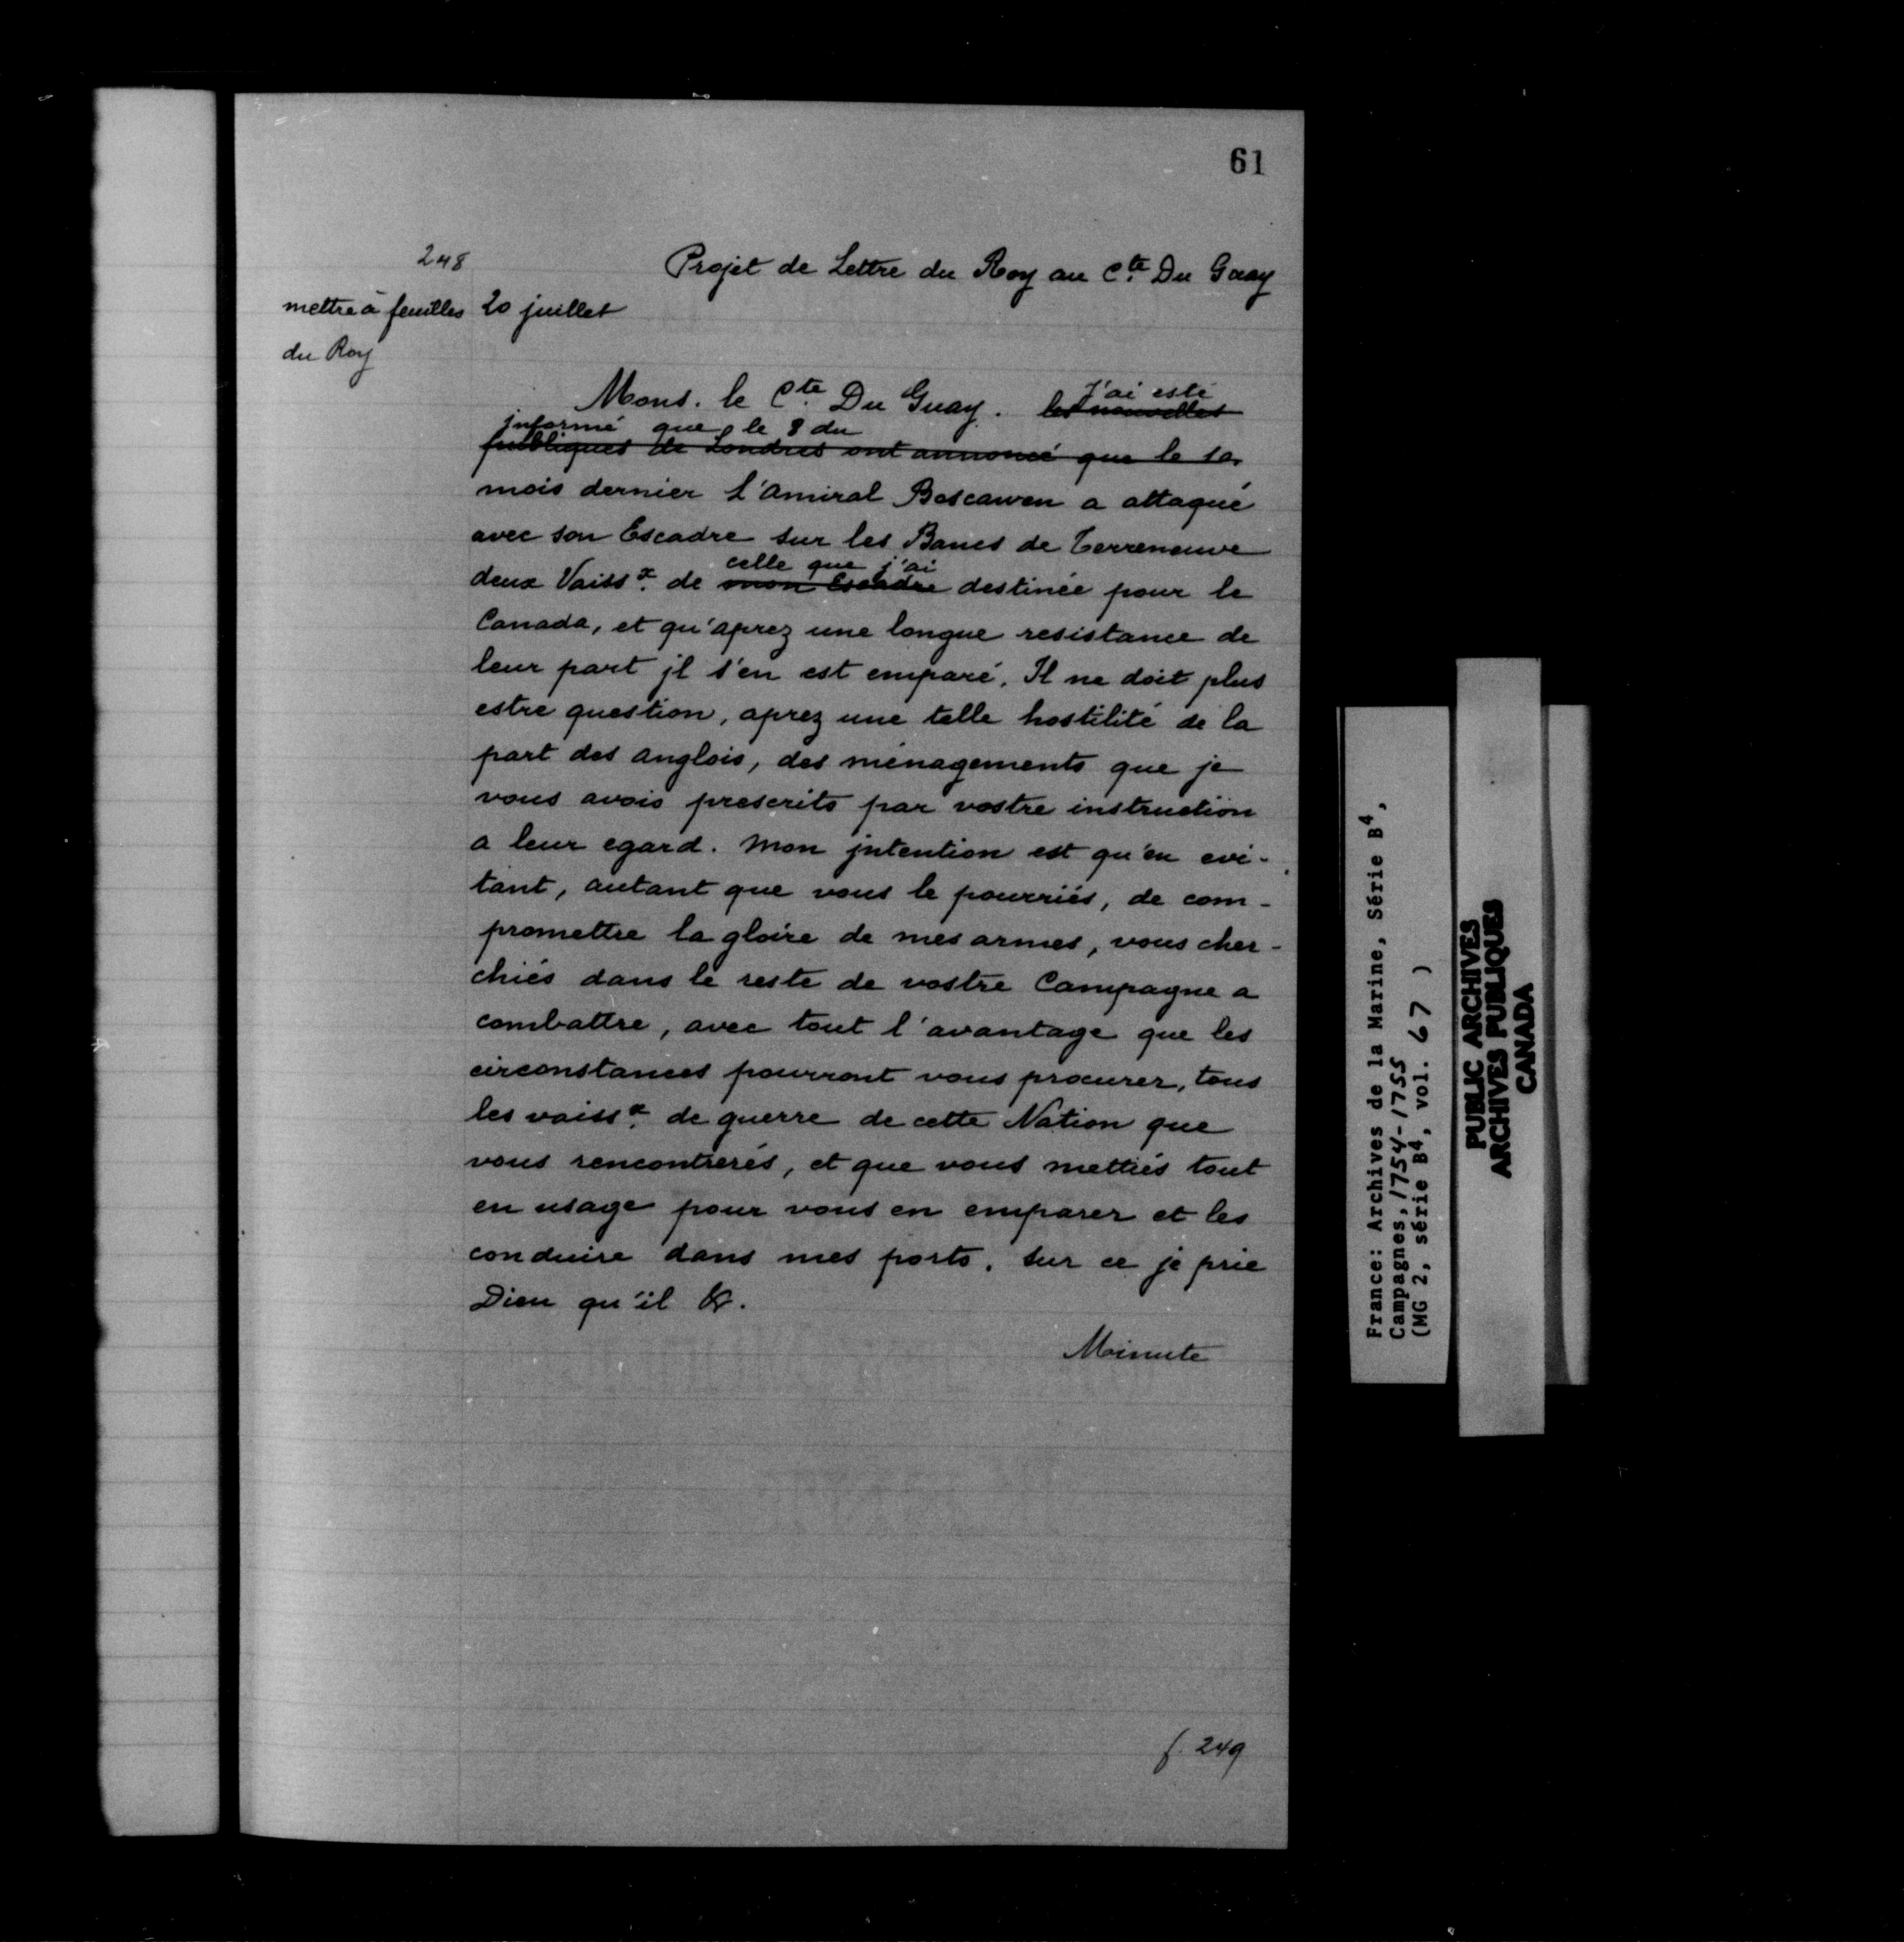 61
248
Projet de Lettre du Roy au Cte. Du Guay
mettre à feuilles 20 juillet
du Roy
J'ai esté
Mons. le Cte. Du Guay. les nouvelles
jnformé que le 8 du
publiques de Londres ont annoncé que le 10
mois dernier l'amiral Boscawen a attaqué
avec son Escadre sur les Bancs de Terreneuve
celle que j'ai
deux Vaissx. de mon Escadre destinée pour le
Canada, et qu'aprez une longue resistance de
leur part jl s'en est emparé. Il ne doit plus
estre question, aprez une telle hostilité de la
part des anglois, des ménagements que je
vous avois prescrits par vostre instruction
a leur egard. Mon jntention est qu'en evi-
tant, autant que vous le pourriés, de com-
promettre la gloire de mes armes, vous cher-
chiés dans le reste de vostre Campagne a
combattre, avec tout l'avantage que les
circonstances pourront vous procurer, tous
les vaissx. de guerre de cette Nation que
vous rencontrerés, et que vous mettiés tout
en usage pour vous en emparer et les
conduire dans mes ports. Sur ce je prie
Dieu qu'il &.
Minute
f. 249
France: Archives de la Marine, Série B4,
Campagnes, 1754-1755
(MG 2, série B4, vol. 67 )
PUBLIC ARCHIVES
ARCHIVES PUBLIQUES
CANADA